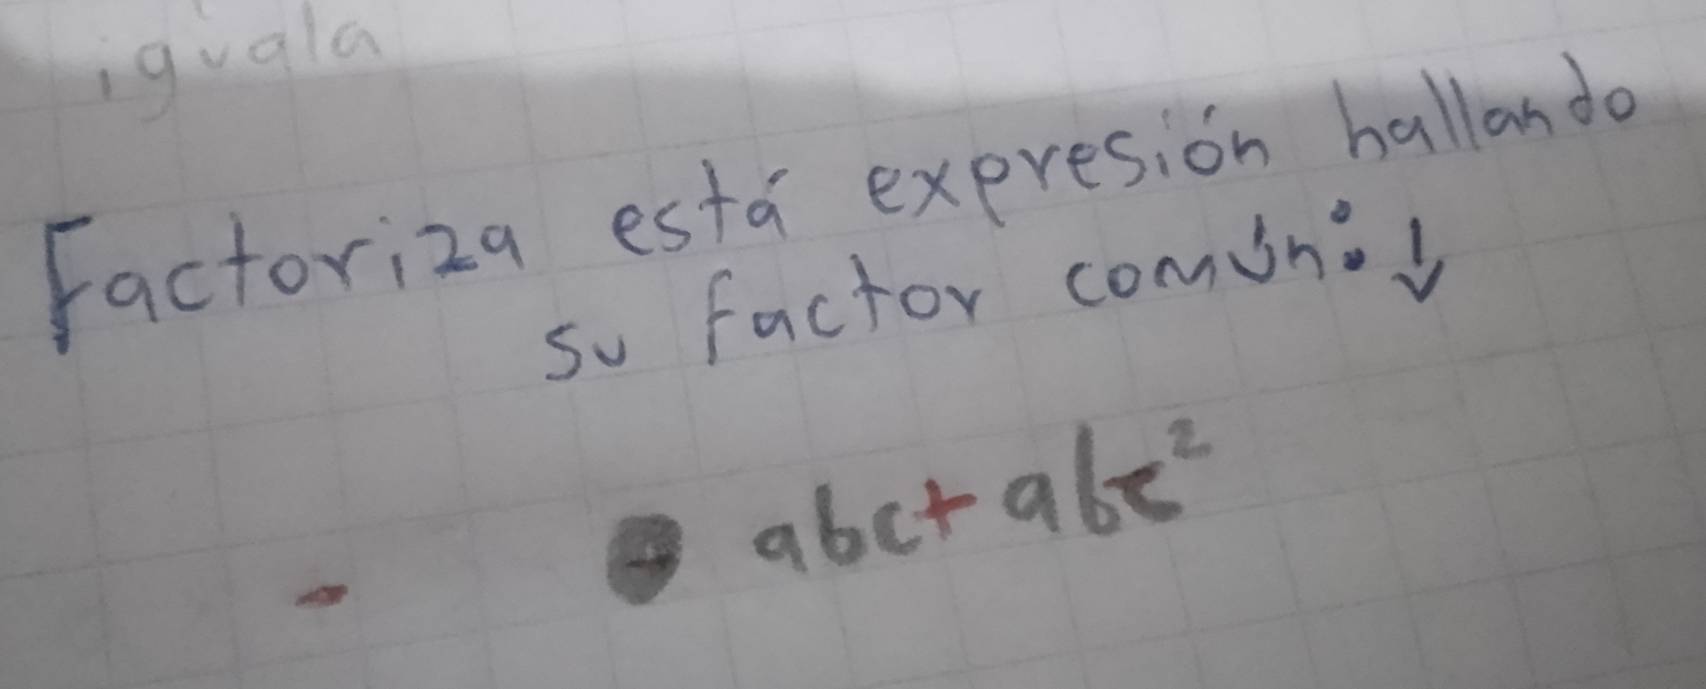 iguala
Factoriza está expresión hallando
su factor común: ↓
- abc + abc²